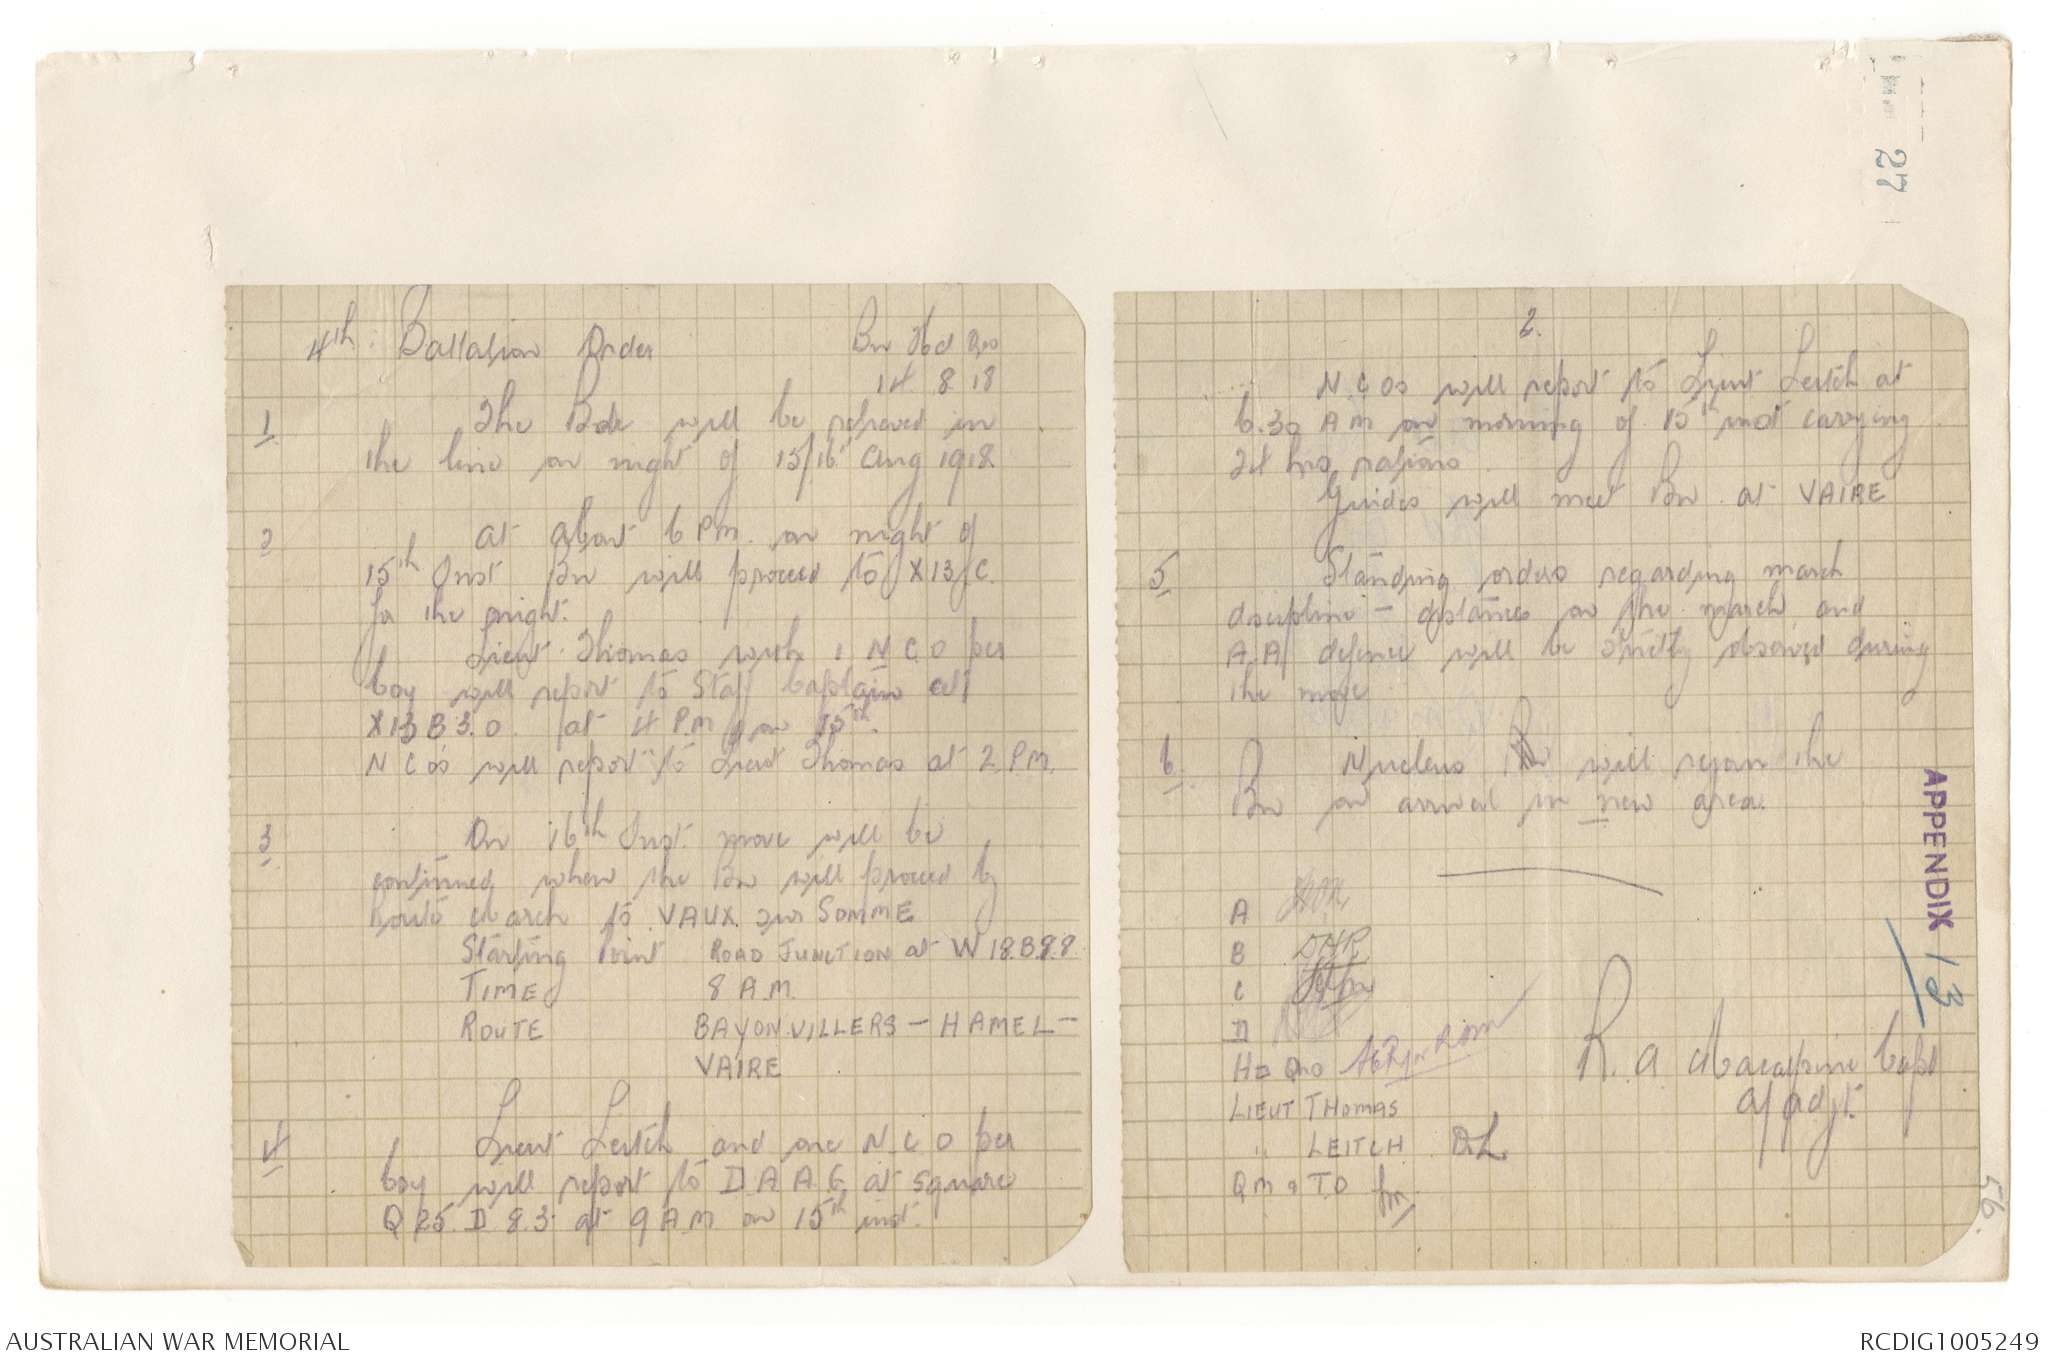 27
4th Battalion Order Bn Hd Qrs
14 8 18
1 The Bde will be relieved in
the line on night of 15/16 Aug 1918
2 At about 6 PM on night of
15th Inst Bn will proceed to X13.C.
for the night.
Lieut Thomas with 1 N.C.O per
Coy will report to Staff Captain at
X13 B 3.0. at 4 P.M on 15th.
N C Os will report to Lieut Thomas at 2 P.M.
3 On 16th Inst. move will be
continued, when the Bn will proceed by
Route March to VAUX sur SOMME
Starting Point ROAD JUNCTION at W18.B.8.8.
TIME 8 A.M.
ROUTE BAYONVILLERS - HAMEL -
VAIRE
4 Lieut Leitch and one N.C.O per
Coy will report to D.A.A.G. at square
Q 25. D. 8.3. at 9 A.M. on 15th inst.
2.
N.C Os will report to Lieut Leitch at
6.30 AM on morning of 15th inst carrying
24 hrs rations
Guides will meet Bn at VAIRE
5 Standing orders regarding march
discipline - distances on the march and
A.A defence will be strictly observed during
the move
6. Nucleus will rejoin the
Bn on arrival in new area.
A
B
C
D
HD QRS
LIEUT THOMAS
" LEITCH DL
QM & TO
R. A Macalpine Capt
A/Adjt.
APPENDIX 13
56.
AUSTRALIAN WAR MEMORIAL
RCDIG1005249